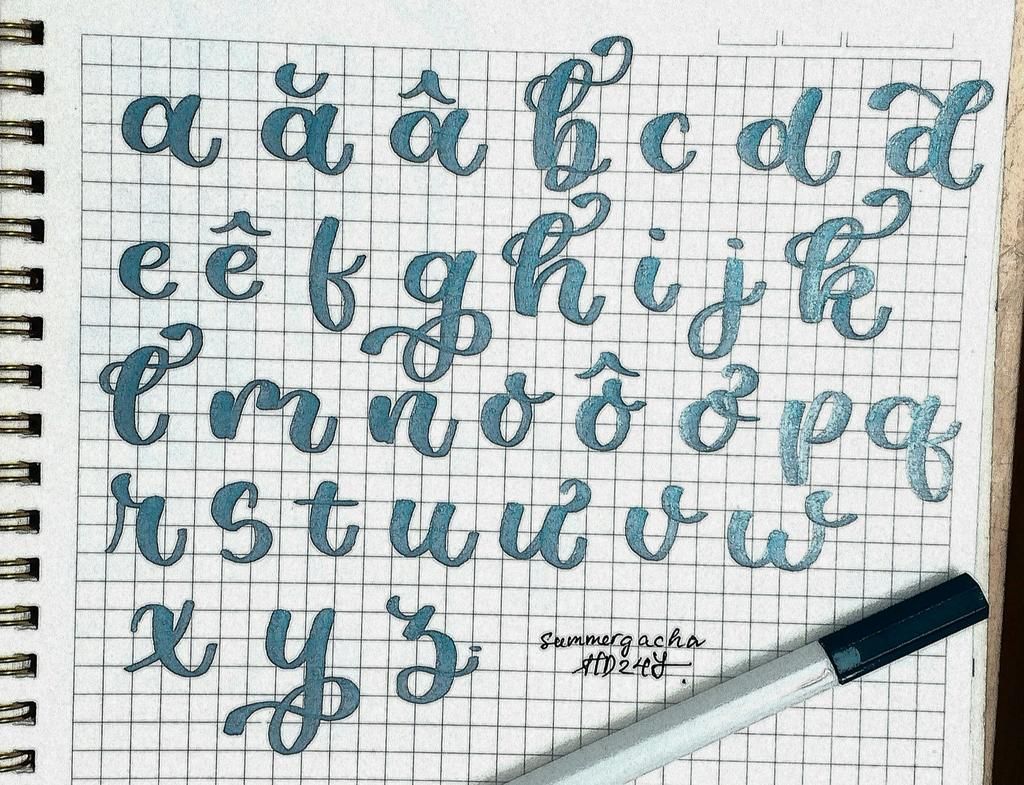 a ă â b c d đ
e ê f g h i j k
l m n o ô ơ p q
r s t u ư v w
x y z
summergacha
#HD24Y